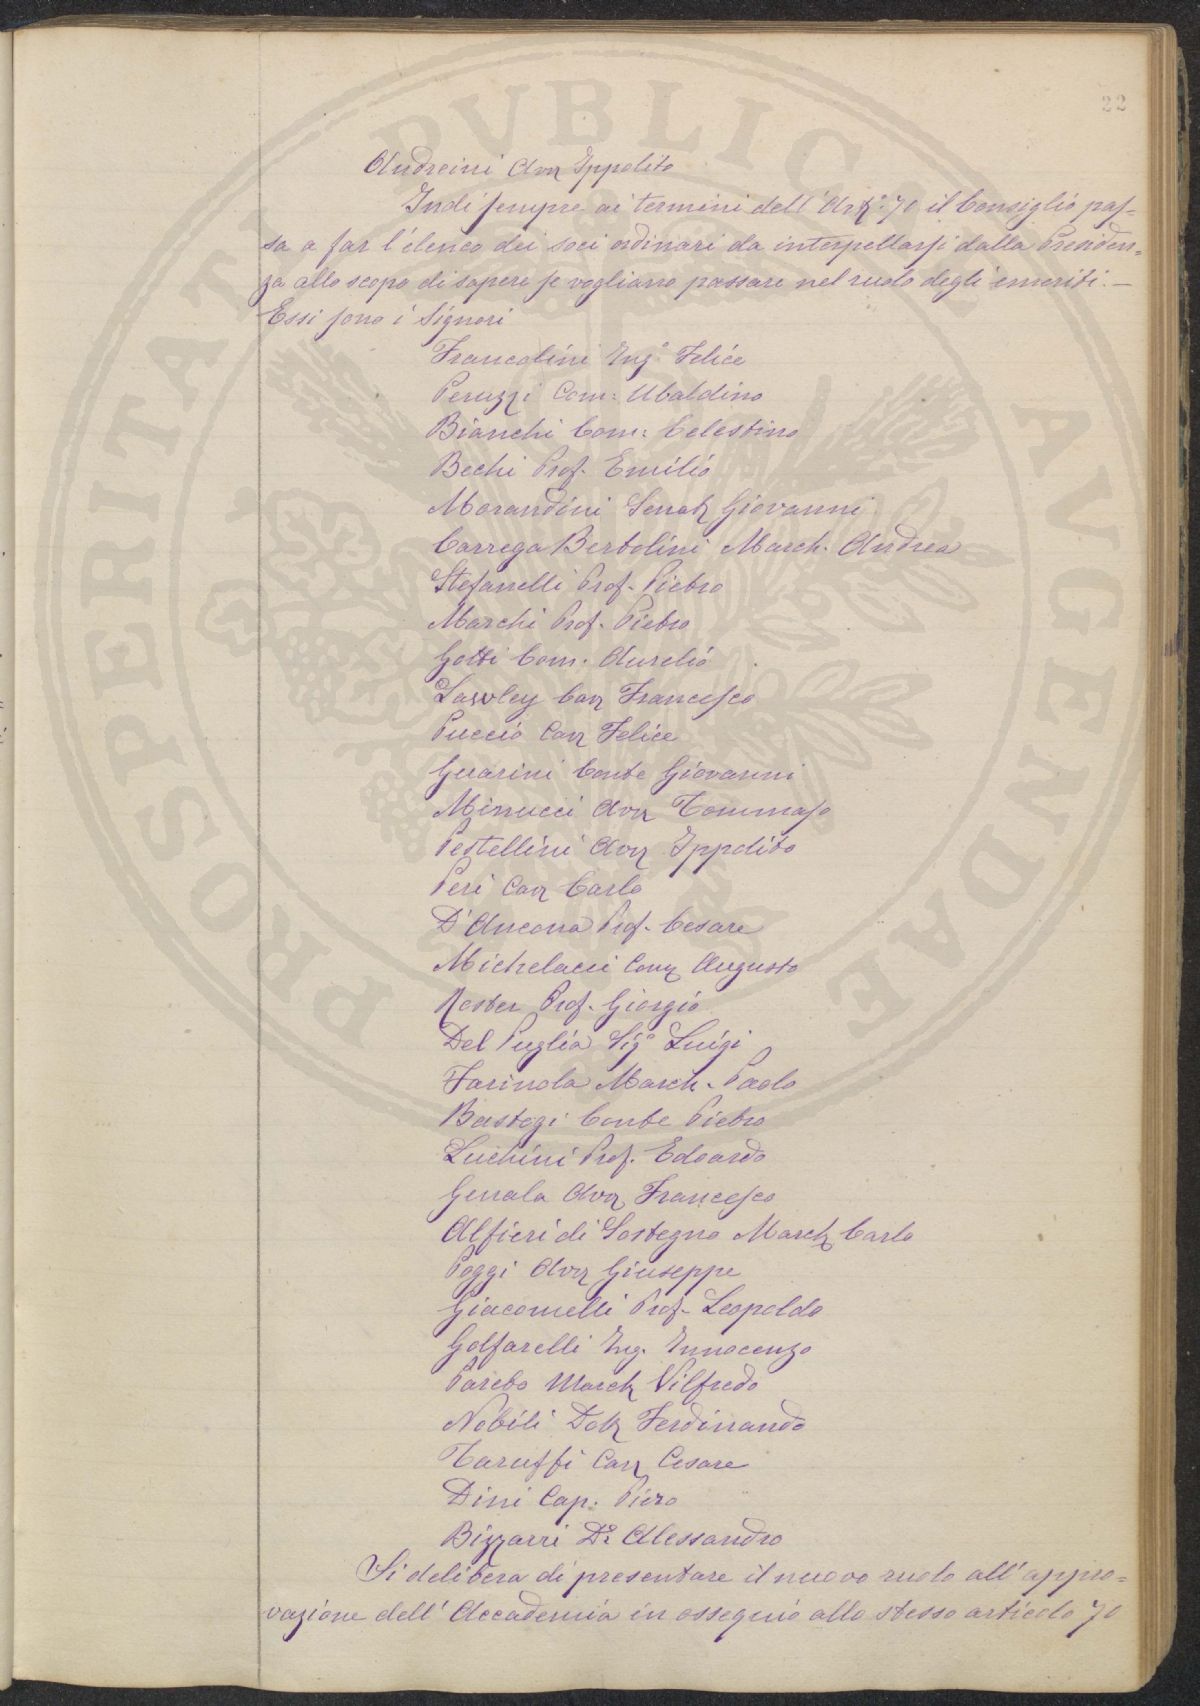 22
Andreini Avv Ippolito
Indi sempre ai termini dell'Art.° 70 il Consiglio pas-
sa a far l'elenco dei soci ordinari da interpellarsi dalla Presiden=
za allo scopo di sapere se vogliano passare nel ruolo degli emeriti. —
Essi sono i Signori
Francolini Ing.e Felice
Peruzzi Com: Ubaldino
Bianchi Com: Celestino
Bechi Prof. Emilio
Morandini Senat Giovanni
Carrega Bertolini March. Andrea
Stefanelli Prof. Pietro
Marchi Prof. Pietro
Gotti Com. Aurelio
Lawley Cav Francesco
Puccio Cav Felice
Guarini Conte Giovanni
Minucci Avv Tommaso
Pestellini Avv Ippolito
Peri Cav Carlo
D'Ancona Prof. Cesare
Michelacci Cav Augusto
Roster Prof. Giorgio
Del Puglia Sig.e Luigi
Farinola March. Paolo
Bastogi Conte Pietro
Luchini Prof. Edoardo
Genala Avv Francesco
Alfieri di Sostegno March Carlo
Poggi Avv Giuseppe
Giacomelli Prof. Leopoldo
Golfarelli Ing. Innocenzo
Pareto March Vilfredo
Nobili Dott Ferdinando
Taruffi Cav Cesare
Dini Cap. Piero
Bizzarri Dr Alessandro
Si delibera di presentare il nuovo ruolo all'appro=
vazione dell'Accademia in ossequio allo stesso articolo 70
PROSPERITATI PVBLICAE AVGENDAE